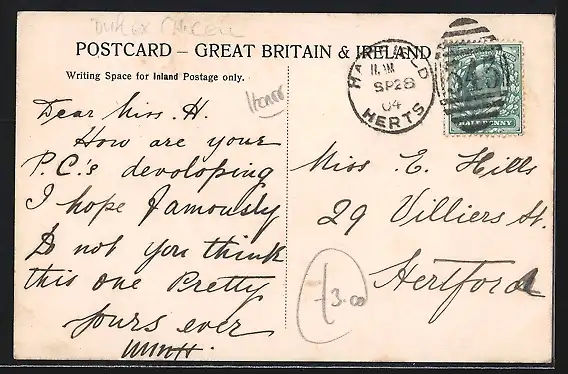 DUPLEX CANCELL
POSTCARD – GREAT BRITAIN & IRELAND
Writing Space for Inland Postage only.
HATFIELD
SP 28
04
HERTS
HALFPENNY
Dear Miss. H.
How are your
P.C.'s devoloping
I hope famously
Do not you think
this one Pretty
yours ever
Miss E. Hills
29 Villiers St.
Hertford
£3.00